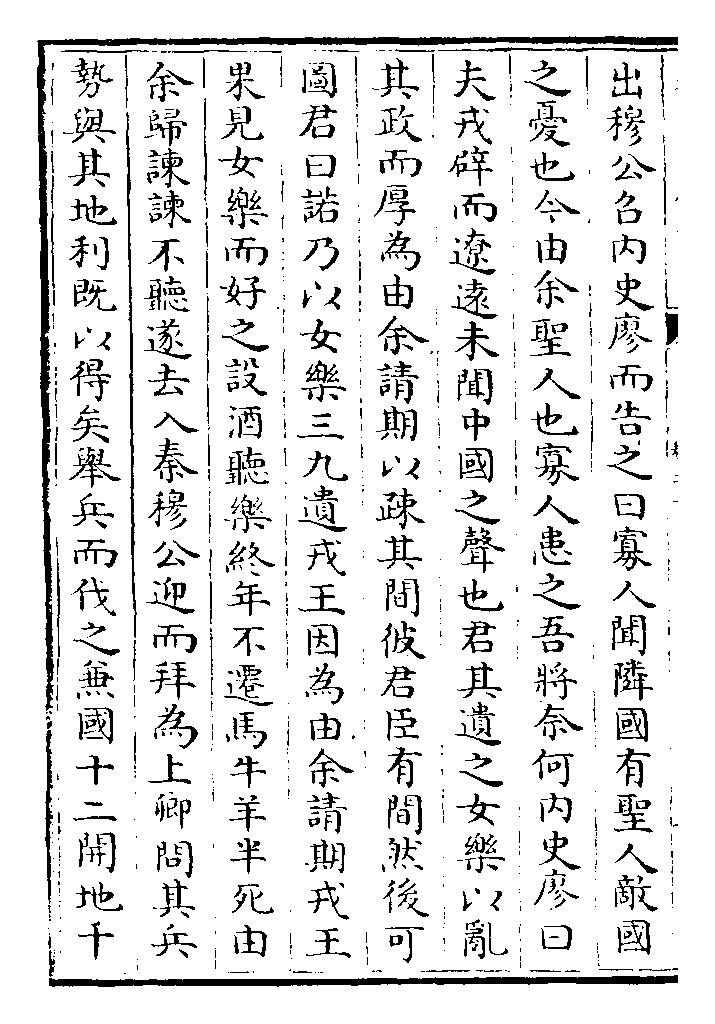 出穆公召内史廖而告之曰寡人聞隣國有聖人敵國
之憂也今由余聖人也寡人患之吾將奈何内史廖曰
夫戎辟而遼逺未聞中國之聲也君其遺之女樂以亂
其政而厚為由余請期以疎其間彼君臣有間然後可
圖君曰諾乃以女樂三九遺戎王因為由余請期戎王
果見女樂而好之設酒聽樂終年不遷馬牛羊半死由
余歸諫諫不聽遂去入秦穆公迎而拜為上卿問其兵
勢與其地利既以得矣舉兵而伐之兼國十二開地千